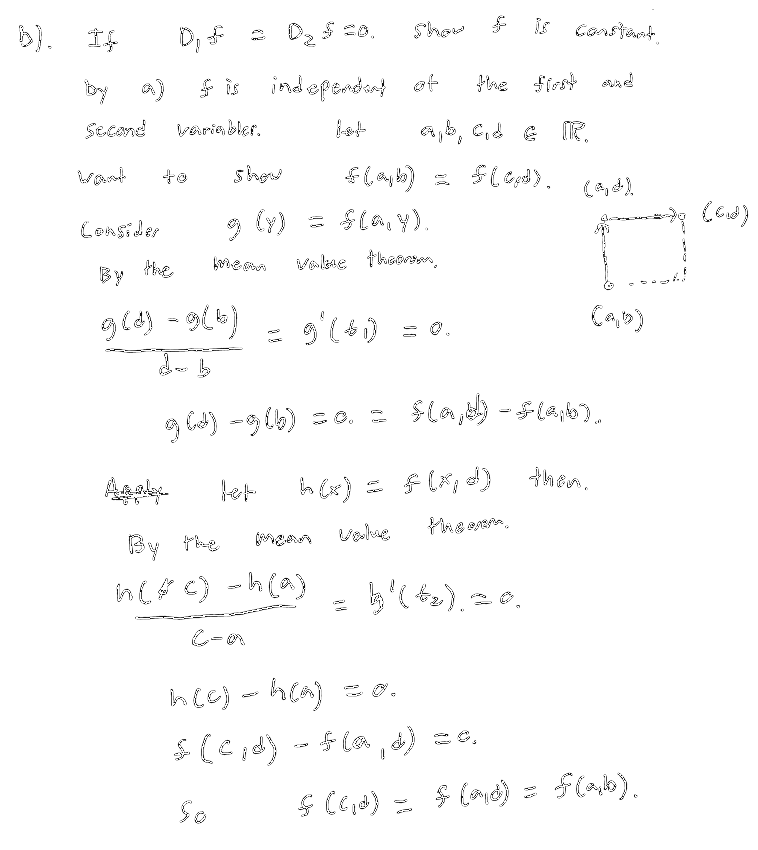 b). If D₁f = D₂f = 0. show f is constant.
by a) f is independent of the first and
second variables. let a,b,c,d ∈ ℝ.
want to show f(a,b) = f(c,d).
(a,d)
(c,d)
(a,b)
Consider g(y) = f(a,y).
By the mean value theorem,
g(d) - g(b) / d-b = g'(t₁) = 0.
g(d) - g(b) = 0. = f(a,d) - f(a,b).
Apply let h(x) = f(x,d) then.
By the mean value theorem.
h(c) - h(a) / c-a = h'(t₂). = 0.
h(c) - h(a) = 0.
f(c,d) - f(a,d) = 0.
So f(c,d) = f(a,d) = f(a,b).